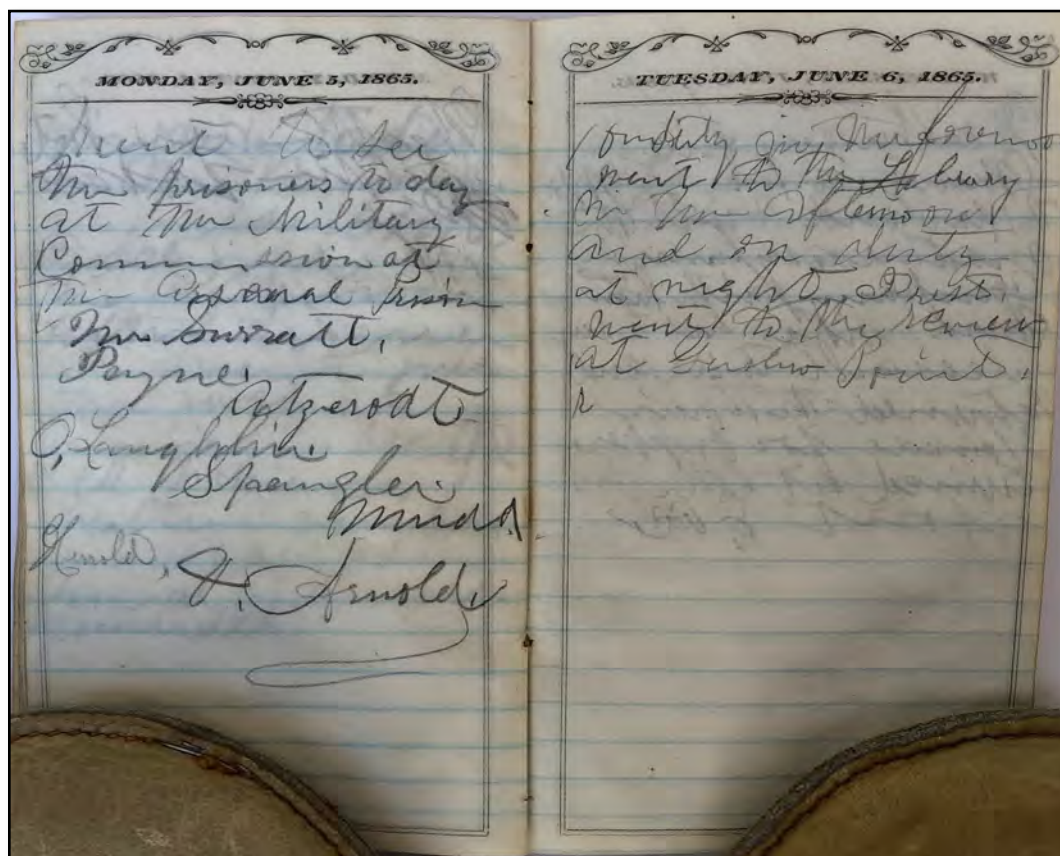 MONDAY, JUNE 5, 1865.
Went to see
the prisoners today
at the Military
Commission at
the Arsenal Prison
Mrs Surratt,
Payne.
Atzerodt
O, Laughlin.
Spangler.
Mudd.
Herold,
& Arnold.
TUESDAY, JUNE 6, 1865.
on duty in the forenoo
went to the Library
in the afternoon
and on duty
at night. Prest.
went to the review
at Point.